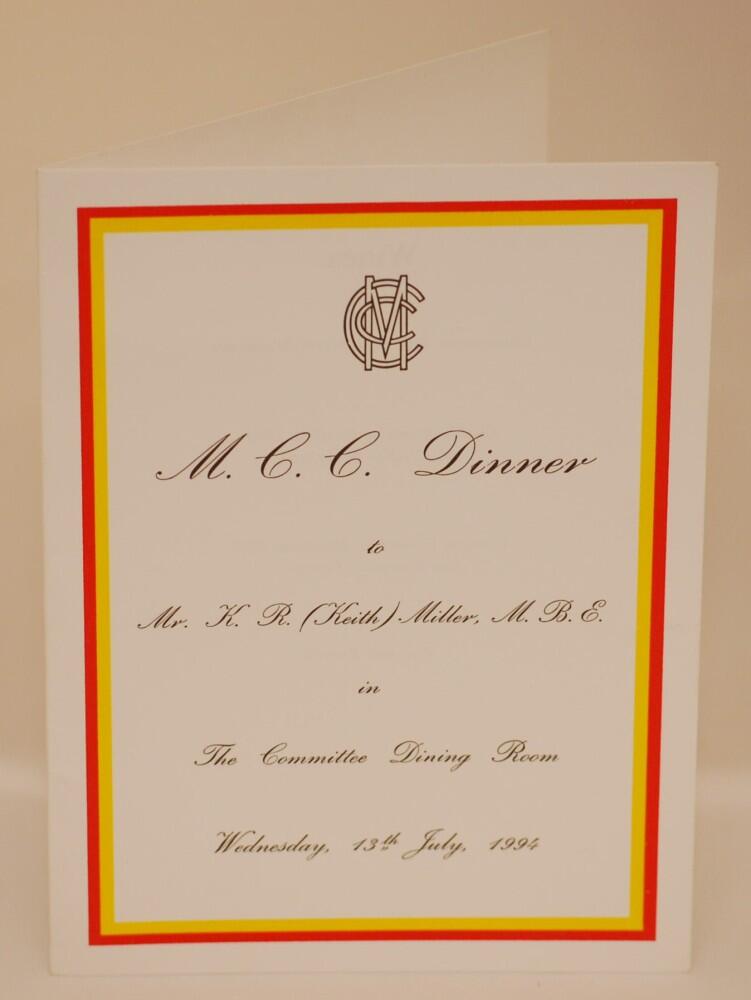 MCC
M. C. C. Dinner
to
Mr. K. R. (Keith) Miller, M. B. E.
in
The Committee Dining Room
Wednesday, 13th July, 1994